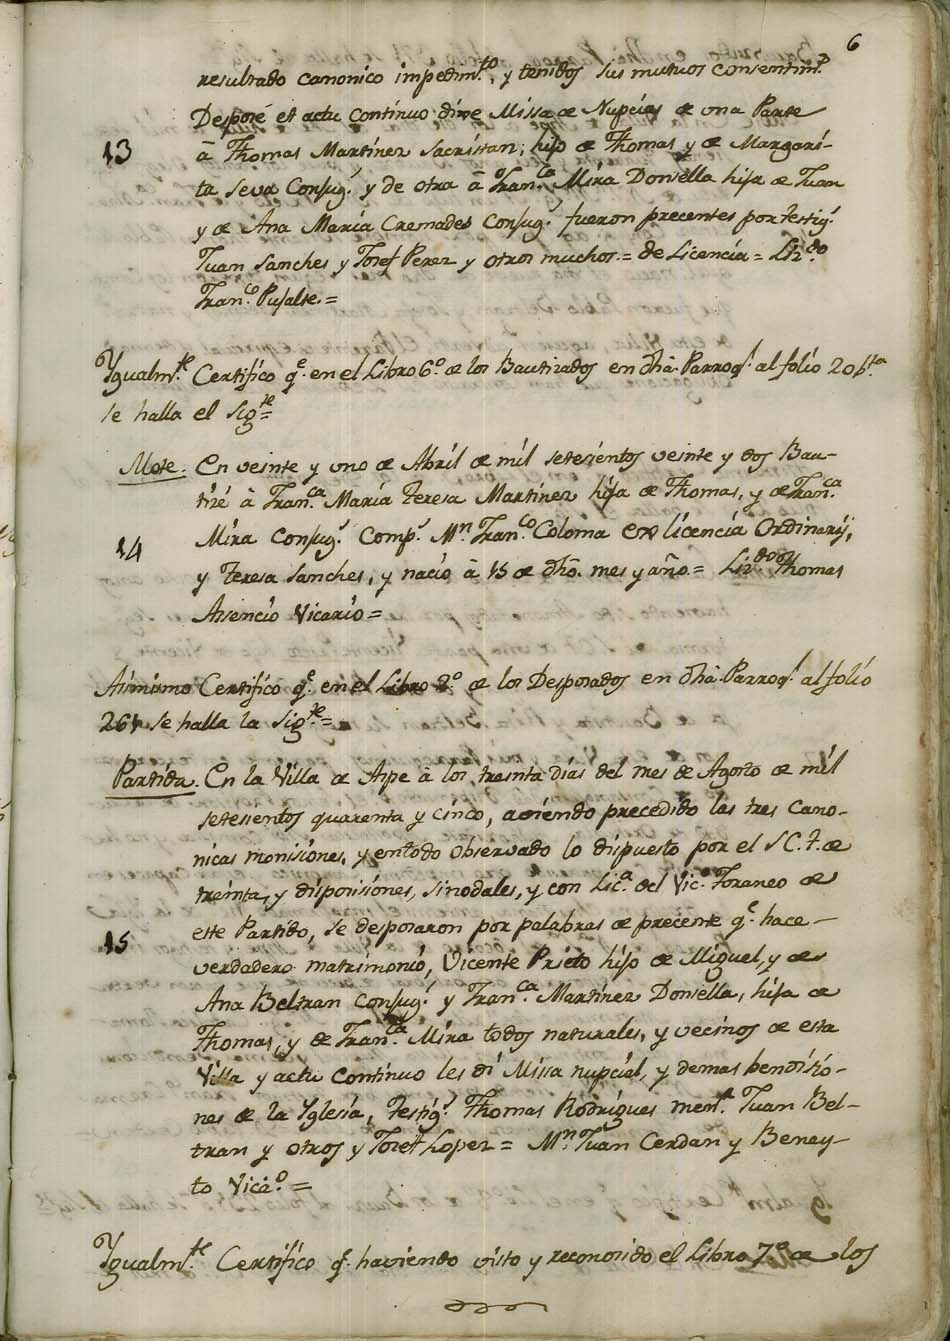 6
resultado canonico impedim.to, y tenidos sus mutuos consentim.s
Desposé et actu continuo dixe Missa de Nupcias de una Parte
13
à Thomas Martinez Sacristan, hijo de Thomas y de Margari-
ta Seva Consug.s y de otra à Fran.ca Mira Donsella hija de Juan
y de Ana Maria Cremades Consug.s fueron precentes por testig.s
Juan Sanches y Josef Perez y otros muchos.= de Licencia = Liz.do
Fran.co Pujalte.=
Ygualm.te Certifico q.e en el Libro 6.o de los Bautizados en dha. Parroq.l al folio
se halla el sig.te=
Mote. En veinte y uno de Abril de mil setesientos veinte y dos Bau-
tizé à Fran.ca Maria Teresa Martinez hija de Thomas, y de Fran.ca
14
Mira Consug.s Comp.s M.n Fran.co Coloma ex licencia Ordinarij,
y Teresa Sanches, y nació à 15 de dho. mes y año.= Liz.do Thomas
Assencio Vicario=
Asimismo Certifico q.e en el Libro 2.o de los Desposados en dha. Parroq.l al folio
se halla la sig.te=
Partida. En la Villa de Aspe à los treinta dias del mes de Agosto de mil
setesientos quarenta y cinco, aviendo precedido las tres Cano-
nicas monisiones, y en todo observado lo dispuesto por el S C. T. de
treinta, y disposisiones, sinodales, y con Lic.a del Vic.o Foraneo de
este Partido, se desposaron por palabras de precente q.e hace
15
verdadero matrimonió, Vicente Prieto hijo de Miguel, y de
Ana Beltran Consug.s y Fran.ca Martinez Donsella, hija de
Thomas, y de Fran.ca Mira todos naturales, y vecinos de esta
Villa y actu continuo les di Missa nupcial, y demas bendisio-
nes de la Yglesia, testig.s Thomas Rodrigues men.r Juan Bel-
tran y otros y Josef Lopez= M.n Juan Cerdan y Beney-
to Vica.o=
Ygualm.te Certifico q.e haviendo visto y reconosido el Libro 7.o de los